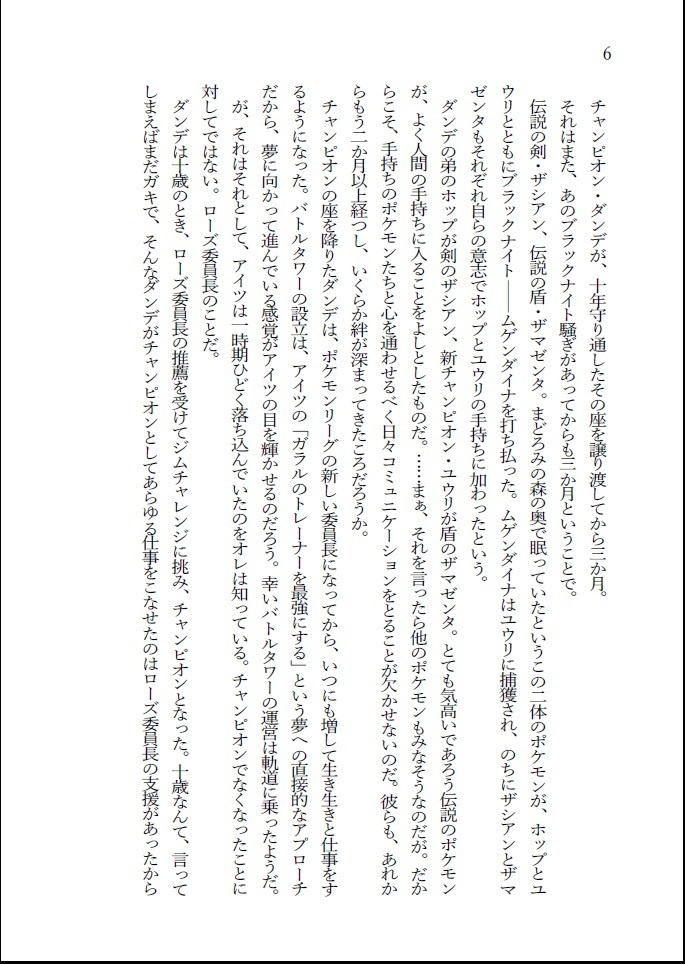 6
チャンピオン・ダンデが、十年守り通したその座を譲り渡してから三か月。
それはまた、あのブラックナイト騒ぎがあってからも三か月ということで。
伝説の剣・ザシアン、伝説の盾・ザマゼンタ。まどろみの森の奥で眠っていたというこの二体のポケモンが、ホップとユ
ウリとともにブラックナイト――ムゲンダイナを打ち払った。ムゲンダイナはユウリに捕獲され、のちにザシアンとザマ
ゼンタもそれぞれ自らの意志でホップとユウリの手持ちに加わったという。
ダンデの弟のホップが剣のザシアン、新チャンピオン・ユウリが盾のザマゼンタ。とても気高いであろう伝説のポケモン
が、よく人間の手持ちに入ることをよしとしたものだ。……まぁ、それを言ったら他のポケモンもみなそうなのだが。だか
らこそ、手持ちのポケモンたちと心を通わせるべく日々コミュニケーションをとることが欠かせないのだ。彼らも、あれか
らもう二か月以上経つし、いくらか絆が深まってきたころだろうか。
チャンピオンの座を降りたダンデは、ポケモンリーグの新しい委員長になってから、いつにも増して生き生きと仕事をす
るようになった。バトルタワーの設立は、アイツの「ガラルのトレーナーを最強にする」という夢への直接的なアプローチ
だから、夢に向かって進んでいる感覚がアイツの目を輝かせるのだろう。幸いバトルタワーの運営は軌道に乗ったようだ。
が、それはそれとして、アイツは一時期ひどく落ち込んでいたのをオレは知っている。チャンピオンでなくなったことに
対してではない。ローズ委員長のことだ。
ダンデは十歳のとき、ローズ委員長の推薦を受けてジムチャレンジに挑み、チャンピオンとなった。十歳なんて、言って
しまえばまだガキで、そんなダンデがチャンピオンとしてあらゆる仕事をこなせたのはローズ委員長の支援があったから